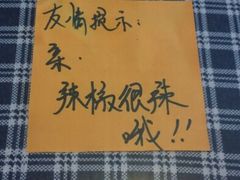 友情提示：
亲.
辣椒很辣
哦!!